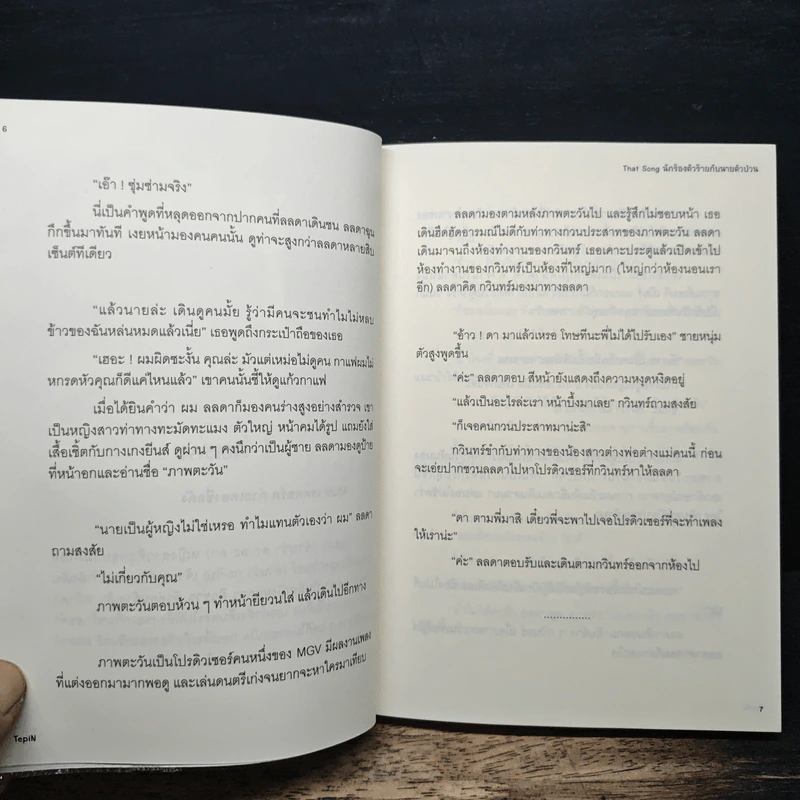 6
“เอ๊า ! ซุ่มซ่ามจริง”
นี่เป็นคำพูดที่หลุดออกจากปากคนที่ลลดาเดินชน ลลดาฉุน
กึกขึ้นมาทันที เงยหน้ามองคนคนนั้น ดูท่าจะสูงกว่าลลดาหลายสิบ
เซ็นต์ทีเดียว
“แล้วนายล่ะ เดินดูคนมั้ย รู้ว่ามีคนจะชนทำไมไม่หลบ
ข้าวของฉันหล่นหมดแล้วเนี่ย” เธอพูดถึงกระเป๋าถือของเธอ
“เฮอะ ! ผมผิดซะงั้น คุณล่ะ มัวแต่เหม่อไม่ดูคน กาแฟผมไม่
หกรดหัวคุณก็ดีแค่ไหนแล้ว” เขาคนนั้นชี้ให้ดูแก้วกาแฟ
เมื่อได้ยินคำว่า ผม ลลดาก็มองคนร่างสูงอย่างสำรวจ เขา
เป็นหญิงสาวท่าทางทะมัดทะแมง ตัวใหญ่ หน้าคมได้รูป แถมยังใส่
เสื้อเชิ้ตกับกางเกงยีนส์ ดูผ่าน ๆ คงนึกว่าเป็นผู้ชาย ลลดามองดูป้าย
ที่หน้าอกและอ่านชื่อ “ภาพตะวัน”
“นายเป็นผู้หญิงไม่ใช่เหรอ ทำไมแทนตัวเองว่า ผม” ลลดา
ถามสงสัย
“ไม่เกี่ยวกับคุณ”
ภาพตะวันตอบห้วน ๆ ทำหน้ายียวนใส่ แล้วเดินไปอีกทาง
ภาพตะวันเป็นโปรดิวเซอร์คนหนึ่งของ MGV มีผลงานเพลง
ที่แต่งออกมามากพอดู และเล่นดนตรีเก่งจนยากจะหาใครมาเทียบ
TepiN
That Song นักร้องตัวร้ายกับนายตัวป่วน
ลลดามองตามหลังภาพตะวันไป และรู้สึกไม่ชอบหน้า เธอ
เดินฮึดฮัดอารมณ์ไม่ดีกับท่าทางกวนประสาทของภาพตะวัน ลลดา
เดินมาจนถึงห้องทำงานของกวินทร์ เธอเคาะประตูแล้วเปิดเข้าไป
ห้องทำงานของกวินทร์เป็นห้องที่ใหญ่มาก (ใหญ่กว่าห้องนอนเรา
อีก) ลลดาคิด กวินทร์มองมาทางลลดา
“อ้าว ! ดา มาแล้วเหรอ โทษทีนะพี่ไม่ได้ไปรับเอง” ชายหนุ่ม
ตัวสูงพูดขึ้น
“ค่ะ” ลลดาตอบ สีหน้ายังแสดงถึงความหงุดหงิดอยู่
“แล้วเป็นอะไรล่ะเรา หน้าบึ้งมาเลย” กวินทร์ถามสงสัย
“ก็เจอคนกวนประสาทมาน่ะสิ”
กวินทร์ขำกับท่าทางของน้องสาวต่างพ่อต่างแม่คนนี้ ก่อน
จะเอ่ยปากชวนลลดาไปหาโปรดิวเซอร์ที่กวินทร์หาให้ลลดา
“ดา ตามพี่มาสิ เดี๋ยวพี่จะพาไปเจอโปรดิวเซอร์ที่จะทำเพลง
ให้เราน่ะ”
“ค่ะ” ลลดาตอบรับและเดินตามกวินทร์ออกจากห้องไป
...............
7